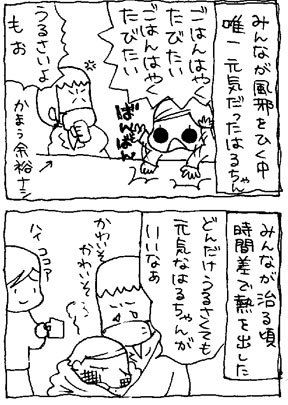 みんなが風邪をひく中
唯一元気だったはるちゃん
ごはんはやく
たびたい
ごはんはやく
たびたい
ばんばん
うるさいよ
もぉ
かまう余裕ナシ
みんなが治る頃
時間差で熱を出した
どんだけうるさくても
元気なはるちゃんが
いいなぁ
かわいそ
かわいそ
ハイ
ココア